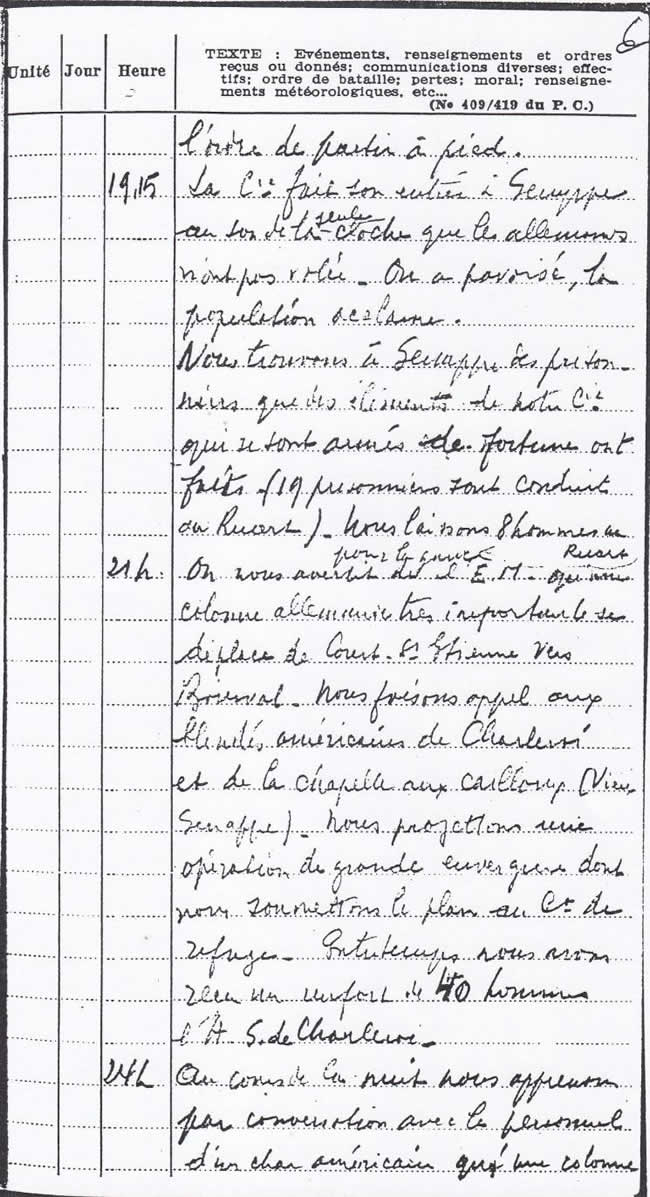 6
Unité Jour Heure
TEXTE : Evénements, renseignements et ordres
reçus ou donnés; communications diverses; effec-
tifs; ordre de bataille; pertes; moral; renseigne-
ments météorologiques, etc...
(No 409/419 du P. C.)
l'ordre de partir à pied.
19,15 La Cie fait son entrée à Genappe
au son de la seule cloche que les allemands
n'ont pas volée - On a pavoisé, la
population acclame.
Nous trouvons à Genappe des prison-
niers que des éléments de notre Cie
qui se sont armés de fortune ont
faits - (19 prisonniers sont conduit
au Ruart) - Nous laissons 8 hommes au Ruart
pour la garde
21h. On nous avertit de l'E.M. que une
colonne allemande très importante se
déplace de Court-St Etienne vers
Bousval - Nous faisons appel aux
blindés américains de Charleroi
et de la chapelle aux cailloux (Vieux
Genappe) - Nous projettons une
opération de grande envergure dont
nous soumettons le plan au Ct de
refuge - Entretemps nous avons
recu un renfort de 40 hommes
l'A.S. de Charleroi -
24h Au cours de la nuit nous apprenons
par conversation avec le personnel
d'un char américain qu'une colonne